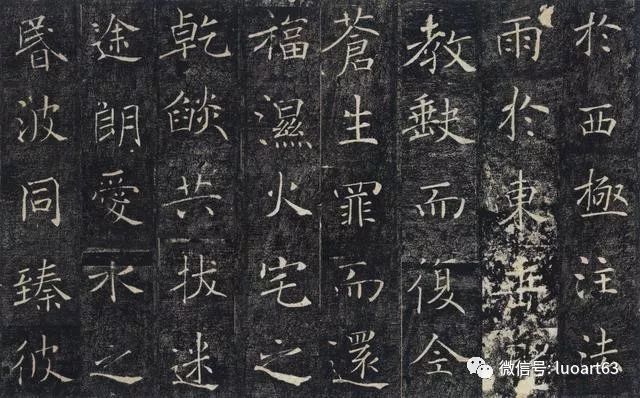 於西極注法
雨於東垂聖
教缺而復全
蒼生罪而還
福濕火宅之
乾燄共拔迷
途朗愛水之
昬波同臻彼
微信号: luoart63